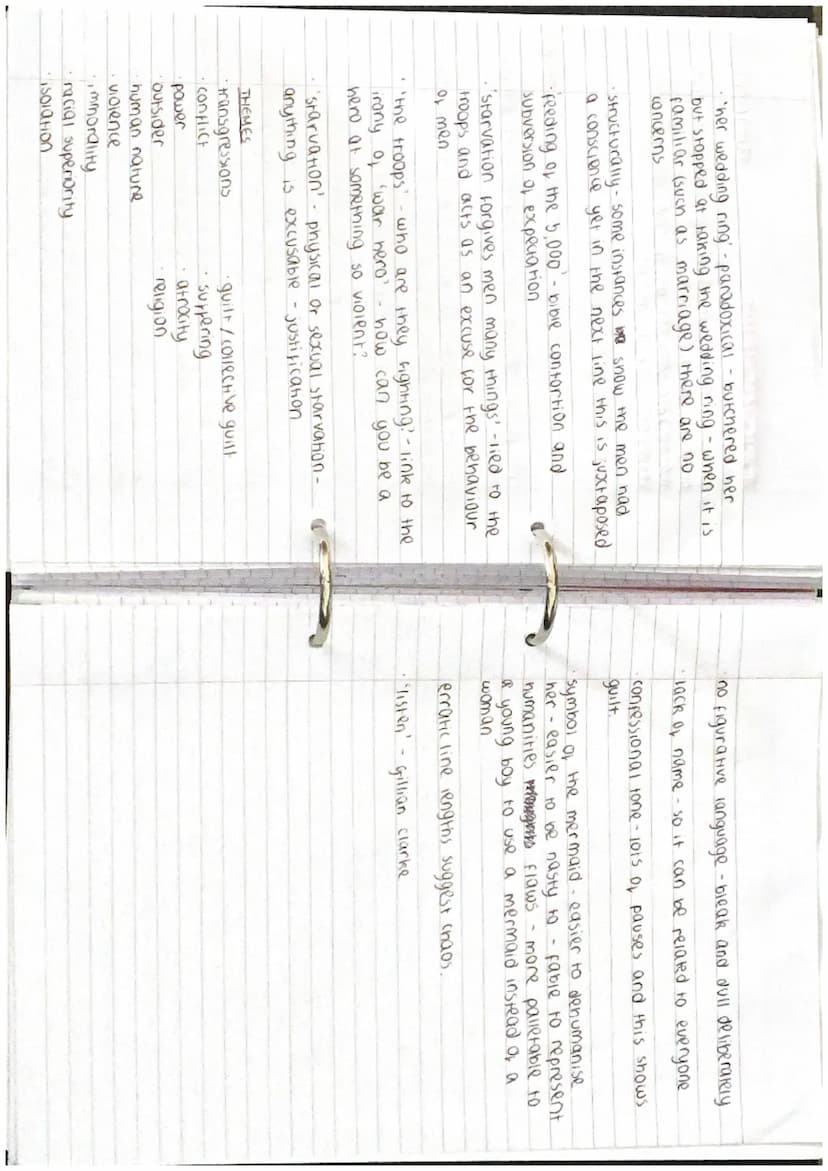 · 'her wedding ring' - paradoxical - butchered her
but stopped at taking the wedding ring - when it is
familiar (such as marriage) there are no
concerns
· structurally - some instances show the men had
a conscience yet in the next line this is juxtaposed
· 'feeding of the 5,000' - bible contortion and
subversion of expectation
· 'starvation forgives men many things' - lied to the
troops and acts as an excuse for the behaviour
of men
· 'the troops' - who are they fighting? - link to the
irony of 'war hero' - how can you be a
hero at something so violent?
· 'starvation' - physical or sexual starvation -
anything is excusable - justification
THEMES
· transgressions
· conflict
· power
· outsider
· human nature
· violence
· immorality
· racial superiority
· isolation
· guilt / collective guilt
· suffering
· atrocity
· religion
· no figurative language - bleak and dull deliberately
· lack of name - so it can be related to everyone
· confessional tone - lots of pauses and this shows
guilt.
· symbol of the mermaid - easier to dehumanise
her - easier to be nasty to - fable to represent
humanities flaws - more palletable to
a young boy to use a mermaid instead of a
woman
erratic line lengths suggest chaos.
· 'listen' - gillian clarke